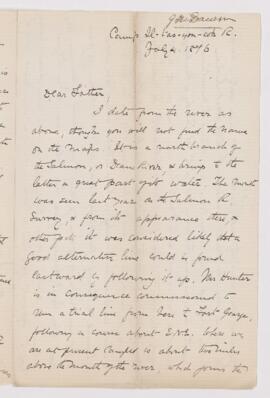 G.M. Dawson
Camp Il-tas-you-co R.
July 4. 1876
Dear Father,
I date from the river as
above, though you will not find the name
on the Maps. It is a north branch of
the Salmon, or Dean River, & brings to the
latter a great part of its water. The mouth
was seen last year on the Salmon R.
Survey, & from its appearance there, &
other facts it was considered likely that a
good alternative line could be found
Eastward by following it up. Mr Hunter
is in consequence commissioned to
run a trial line from here to Fort George,
following a course about E.N.E. Where we
are at present Camped is about two miles
above the mouth of the river, which forms the